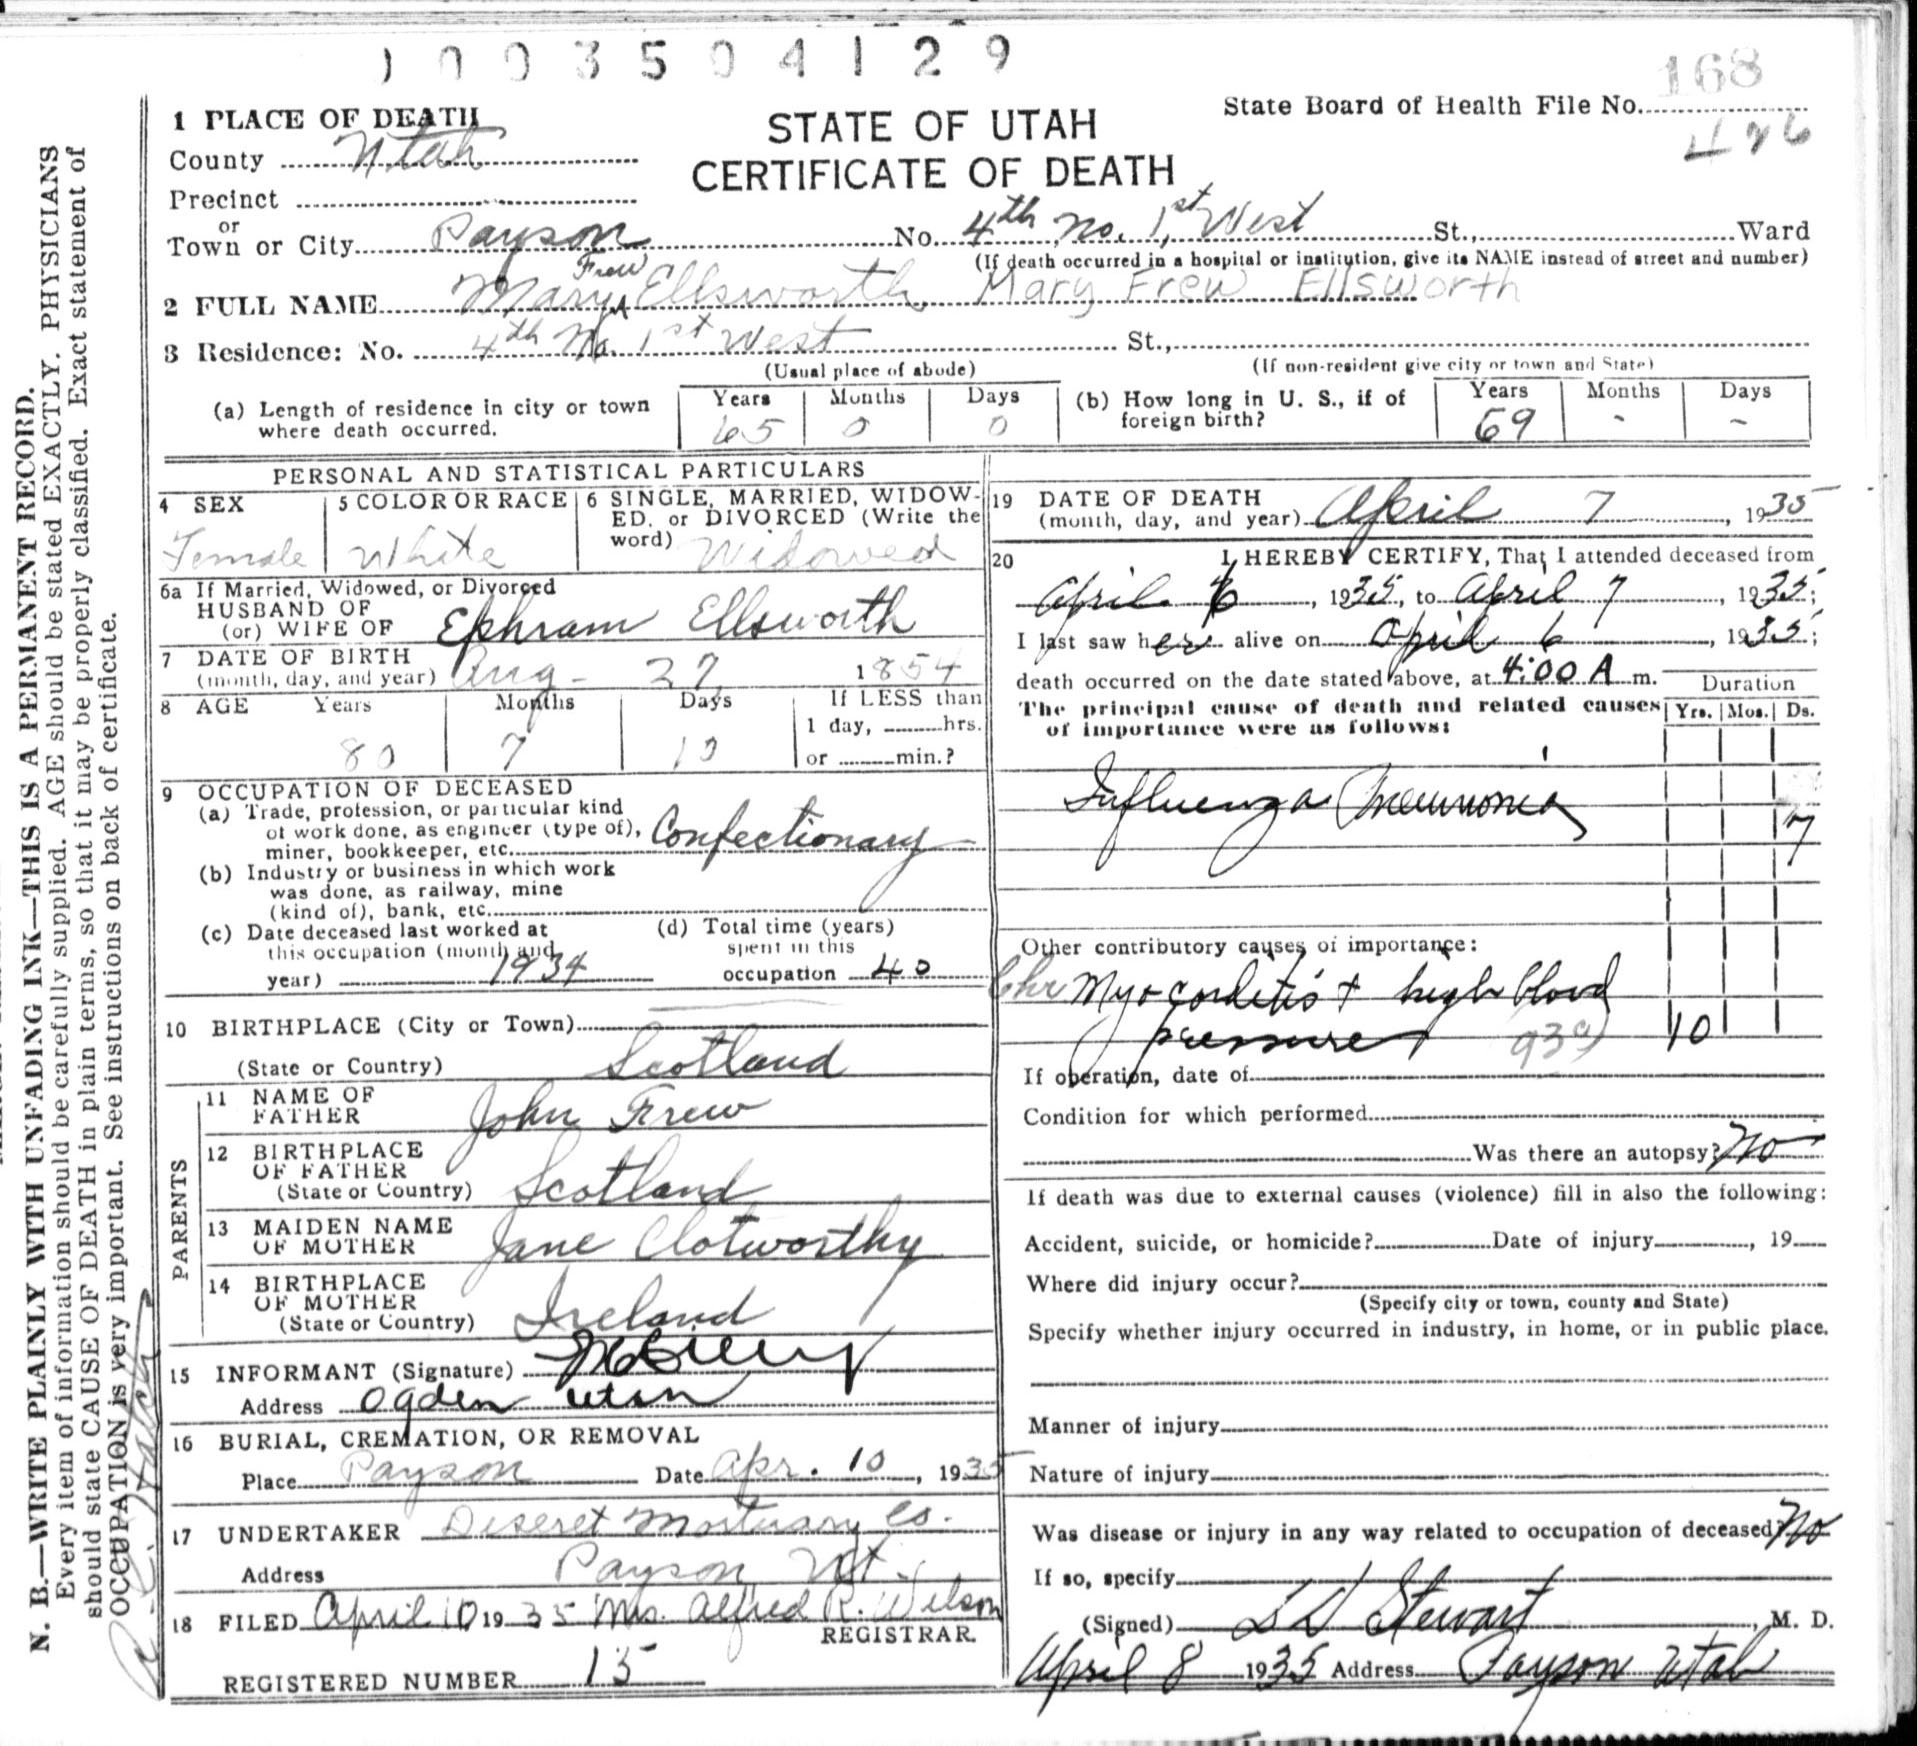 1003504129
168
1 PLACE OF DEATH
STATE OF UTAH
CERTIFICATE OF DEATH
State Board of Health File No.
426
County Utah
Precinct
or
Town or City Payson No. 4th No. 1st West St., Ward
(If death occurred in a hospital or institution, give its NAME instead of street and number)
2 FULL NAME Mary Frew Ellsworth Mary Frew Ellsworth
3 Residence: No. 4th No. 1st West St.,
(Usual place of abode) (If non-resident give city or town and State)
(a) Length of residence in city or town where death occurred. Years 65 Months 0 Days 0
(b) How long in U. S., if of foreign birth? Years 69 Months - Days -
PERSONAL AND STATISTICAL PARTICULARS
4 SEX Female
5 COLOR OR RACE White
6 SINGLE, MARRIED, WIDOW-
ED, or DIVORCED (Write the
word) Widowed
6a If Married, Widowed, or Divorced
HUSBAND OF
(or) WIFE OF Ephram Ellsworth
7 DATE OF BIRTH
(month, day, and year) Aug - 27 1854
8 AGE Years 80 Months 7 Days 10
If LESS than
1 day, hrs.
or min.?
9 OCCUPATION OF DECEASED
(a) Trade, profession, or particular kind
of work done, as engineer (type of),
miner, bookkeeper, etc. Confectionary
(b) Industry or business in which work
was done, as railway, mine
(kind of), bank, etc.
(c) Date deceased last worked at
this occupation (month and
year) 1934
(d) Total time (years)
spent in this
occupation 40
10 BIRTHPLACE (City or Town)
(State or Country) Scotland
PARENTS
11 NAME OF
FATHER John Frew
12 BIRTHPLACE
OF FATHER
(State or Country) Scotland
13 MAIDEN NAME
OF MOTHER Jane Clotworthy
14 BIRTHPLACE
OF MOTHER
(State or Country) Ireland
15 INFORMANT (Signature)
Address Ogden Utah
16 BURIAL, CREMATION, OR REMOVAL
Place Payson Date Apr. 10, 1935
17 UNDERTAKER Deseret Mortuary Co.
Address Payson Ut.
18 FILED April 10 1935 Mrs. Alfred R. Wilson
REGISTRAR.
REGISTERED NUMBER 15
19 DATE OF DEATH
(month, day, and year) April 7, 1935
20 I HEREBY CERTIFY, That I attended deceased from
April 6, 1935, to April 7, 1935;
I last saw her alive on April 6, 1935;
death occurred on the date stated above, at 4:00 A m.
Duration
The principal cause of death and related causes
of importance were as follows:
Yrs. Mos. Ds.
Influenza Pneumonia 7
Other contributory causes of importance:
Chr Myocorditis + high blood
pressure 93c) 10
If operation, date of
Condition for which performed
Was there an autopsy? No
If death was due to external causes (violence) fill in also the following:
Accident, suicide, or homicide? Date of injury , 19
Where did injury occur?
(Specify city or town, county and State)
Specify whether injury occurred in industry, in home, or in public place.
Manner of injury
Nature of injury
Was disease or injury in any way related to occupation of deceased? No
If so, specify
(Signed) L D Stewart, M. D.
April 8 1935 Address Payson Utah
N. B.—WRITE PLAINLY WITH UNFADING INK—THIS IS A PERMANENT RECORD.
Every item of information should be carefully supplied. AGE should be stated EXACTLY. PHYSICIANS
should state CAUSE OF DEATH in plain terms, so that it may be properly classified. Exact statement of
OCCUPATION is very important. See instructions on back of certificate.